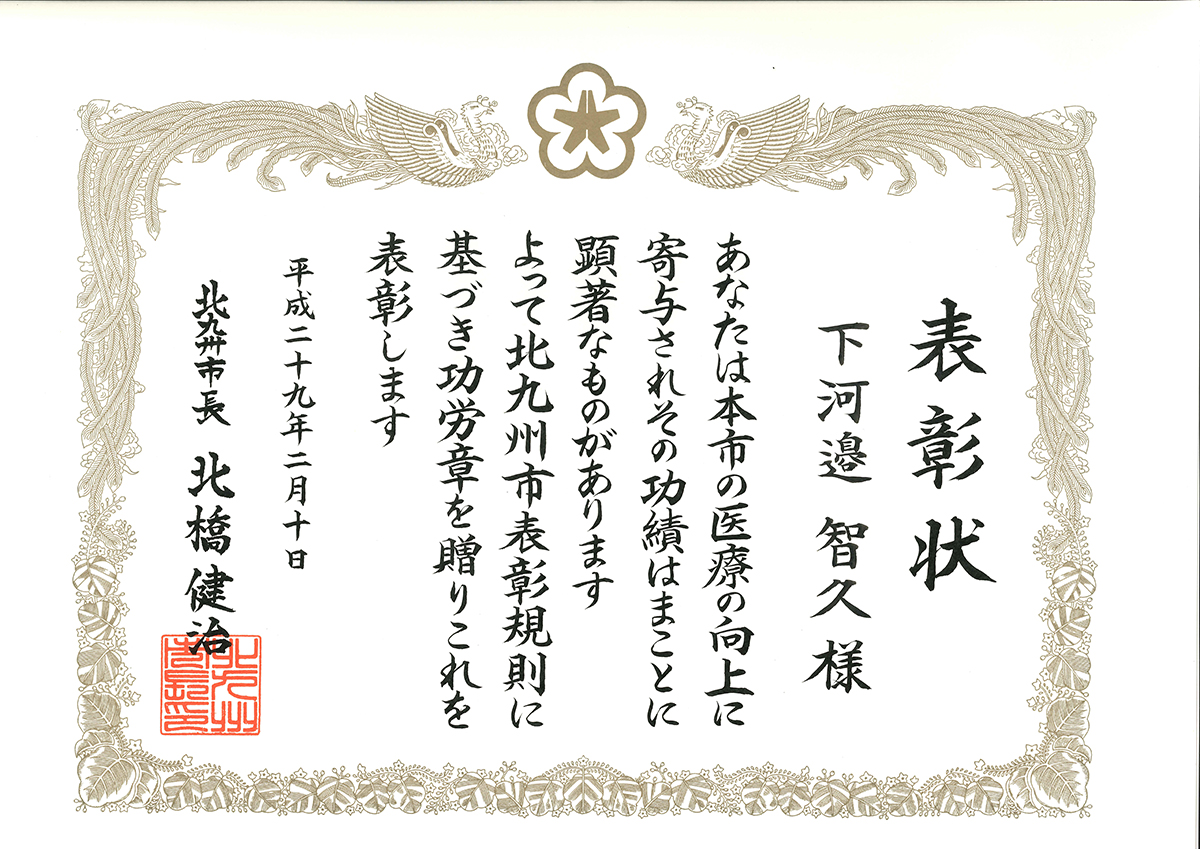 表彰状
下河邉 智久 様
あなたは本市の医療の向上に
寄与されその功績はまことに
顕著なものがあります
よって北九州市表彰規則に
基づき功労章を贈りこれを
表彰します
平成二十九年二月十日
北九州市長 北橋健治
北九州
市長印